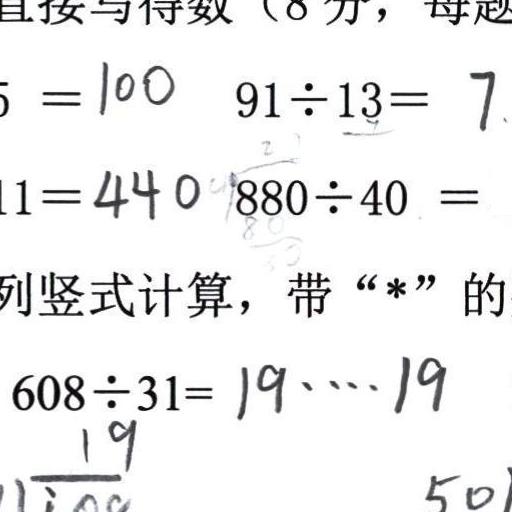 直接写得数（8 分，每题
5 =100 91÷13= 7.
11=440 880÷40 =
列竖式计算，带“*”的
608÷31= 19····19
19
50